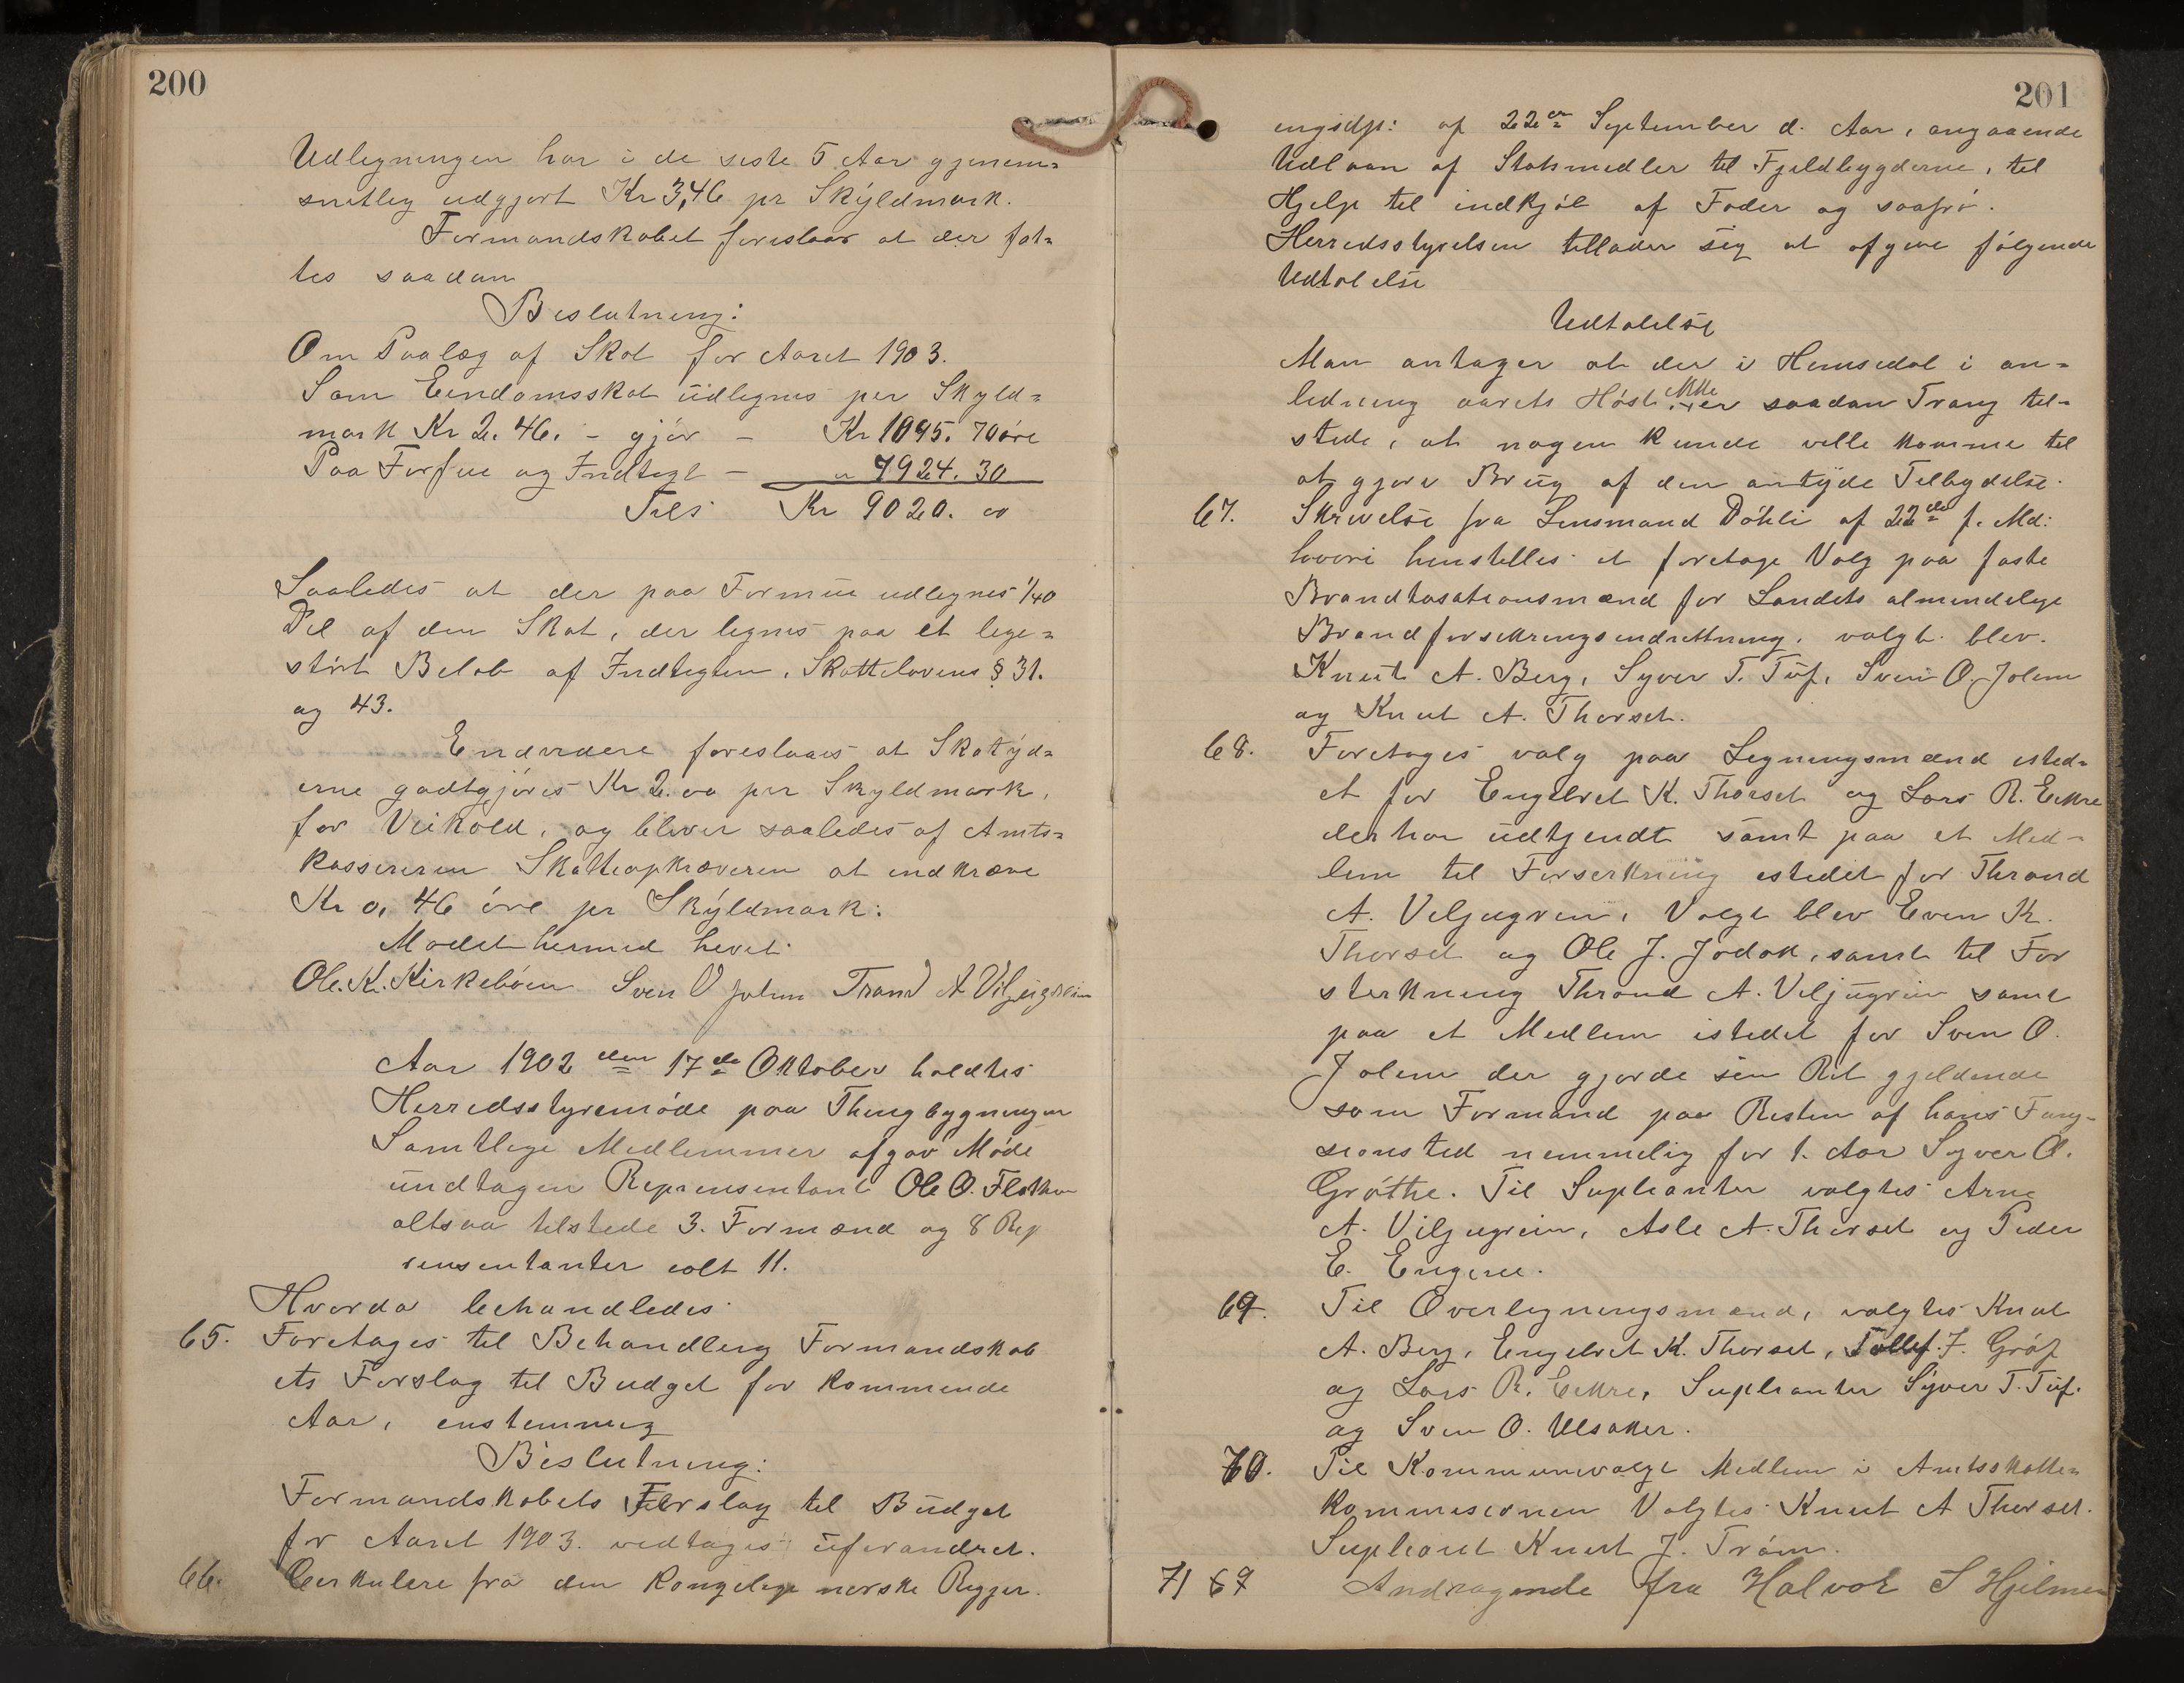 200
Udlegningen har i de siste 5 Aar gjenem-
snitleg udgjort Kr 3,46 pr Skyldmark.
Formandskabet foreslaar at der fat-
tes saadan
Beslutning:
Om Paalæg af Skat for Aaret 1903.
Som Eiendomsskat udlegnes per Skyld-
mark Kr 2.46. - gjør - Kr 1095. 70 øre
Paa Forfue og Indtegt - " 7924. 30
Tils Kr 9020. 00
Saaledes at der paa Formue udlegnes 1/40
Del af den Skat, der legnes paa et lege-
størt Beløb af Indtegten, Skattelovens § 31.
og 43.
Endvidere foreslaaes at Skatyd-
erne godtgjøres Kr 2.00 per Skyldmark,
for Veihold, og bliver saaledes af Amts-
kassereren Skatteopkræveren at indkræve
Kr 0,46 øre pr Skyldmark:
Mødet hermed hevet.
Ole. K. Kirkebøen Sven O Jolem Trand A. Viljugrein
Aar 1902 den 17de Oktober holdtes
Herredsstyremøde paa Thingbygningen
Samtlige Medlemmer afgav Møde
undtagen Reprensentant Ole O. Flathen
altsaa tilstede 3. Formænd og 8 Rep
rensentanter ialt 11.
Hvorda behandledes
65. Foretages til Behandling Formandskab
ets Forslag til Budget for kommende
Aar, enstemmig
Beslutning:
Formandskabets Forslag til Budget
for Aaret 1903. vedtages uforandret.
66. Cirkulære fra den Kongelige norske Regjer-
201
ingsdp: af 22de September d. Aar, angaaende
Udlaan af Statsmidler til Fjeldbygderne, til
Hjelp til indkjøb af Foder og saafrø.
Herredsstyrelsen tillader sig at afgive følgende
Udtalelse
Udtalelse
Man antager at der i Hemsedal i an-
ledning aarets Høst ikke er saadan Trang til-
stede, at nogen kunde ville komme til
at gjøre Brug af den antyde Tilbydelse.
67. Skrivelse fra Lensmand Døkli af 22de f. Md:
hvori henstilles at foretage Valg paa faste
Brandtaxationsmænd for Landets almindelige
Brandforsikringsindretning. valgt blev.
Knut A. Berg, Syver T. Tuf, Svein O. Jolem
og Knut A. Thorset.
68. Foretages valg paa Legningsmænd isted-
et for Engebret K. Thorset og Lars R. Eikre
der har udtjendt samt paa et Med-
lem til Forserkning istedet for Thrond
A. Viljugrein, Valgt blev Even K.
Thorset og Ole J. Jodok, samt til For
sterkning Thrond A. Viljugrein samt
paa et Medlem istedet for Sven O.
Jolem der gjorde sin Ret gjeldende
som Formand paa Resten af hans Fung-
sionstid nemmelig for 1. Aar Syver O.
Grøthe. Til Suplianter valgtes Arne
A. Viljugrein, Asle A. Thorset og Peder
E. Engene.
69. Til Overlegningsmænd, valgtes Knut
A. Berg, Engebret K. Thorset, Tollef. J. Grøf
og Lars R. Eikre, Suplianter Syver T. Tuf.
og Sven O. Ulsaker.
70. Til Kommunevalgt Medlem i Amtsskatte-
kommisionen Valgtes Knut A Thorset.
Supliant Knut J. Trøim.
71 69 Andragende fra Halvor S Hjelmen